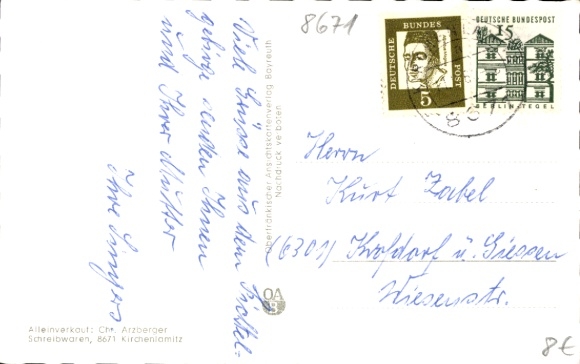 Viele Grüsse aus dem Fichtel-
gebirge senden Ihnen
und Ihrer Mutter
Ihre
8671
DEUTSCHE BUNDESPOST
5
DEUTSCHE BUNDESPOST
15
BERLIN-TEGEL
867
Herrn
Kurt Zabel
(6301) Krofdorf ü. Giessen
Wiesenstr.
Oberfränkischer Ansichtskartenverlag Bayreuth
Nachdruck verboten
OA
B
Alleinverkauf: Chr. Arzberger
Schreibwaren, 8671 Kirchenlamitz
8€